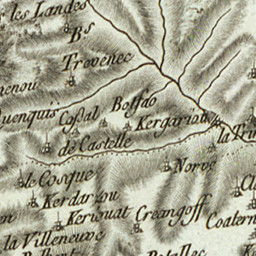 les Landes
Bs
Trovenec
Quenquis
Cossal
Botfao
Kergariou
la Tri
de Castelle
Norve
le Cosque
Kerdariou
Keriouat
Creangoff
Coater
la Villeneuve